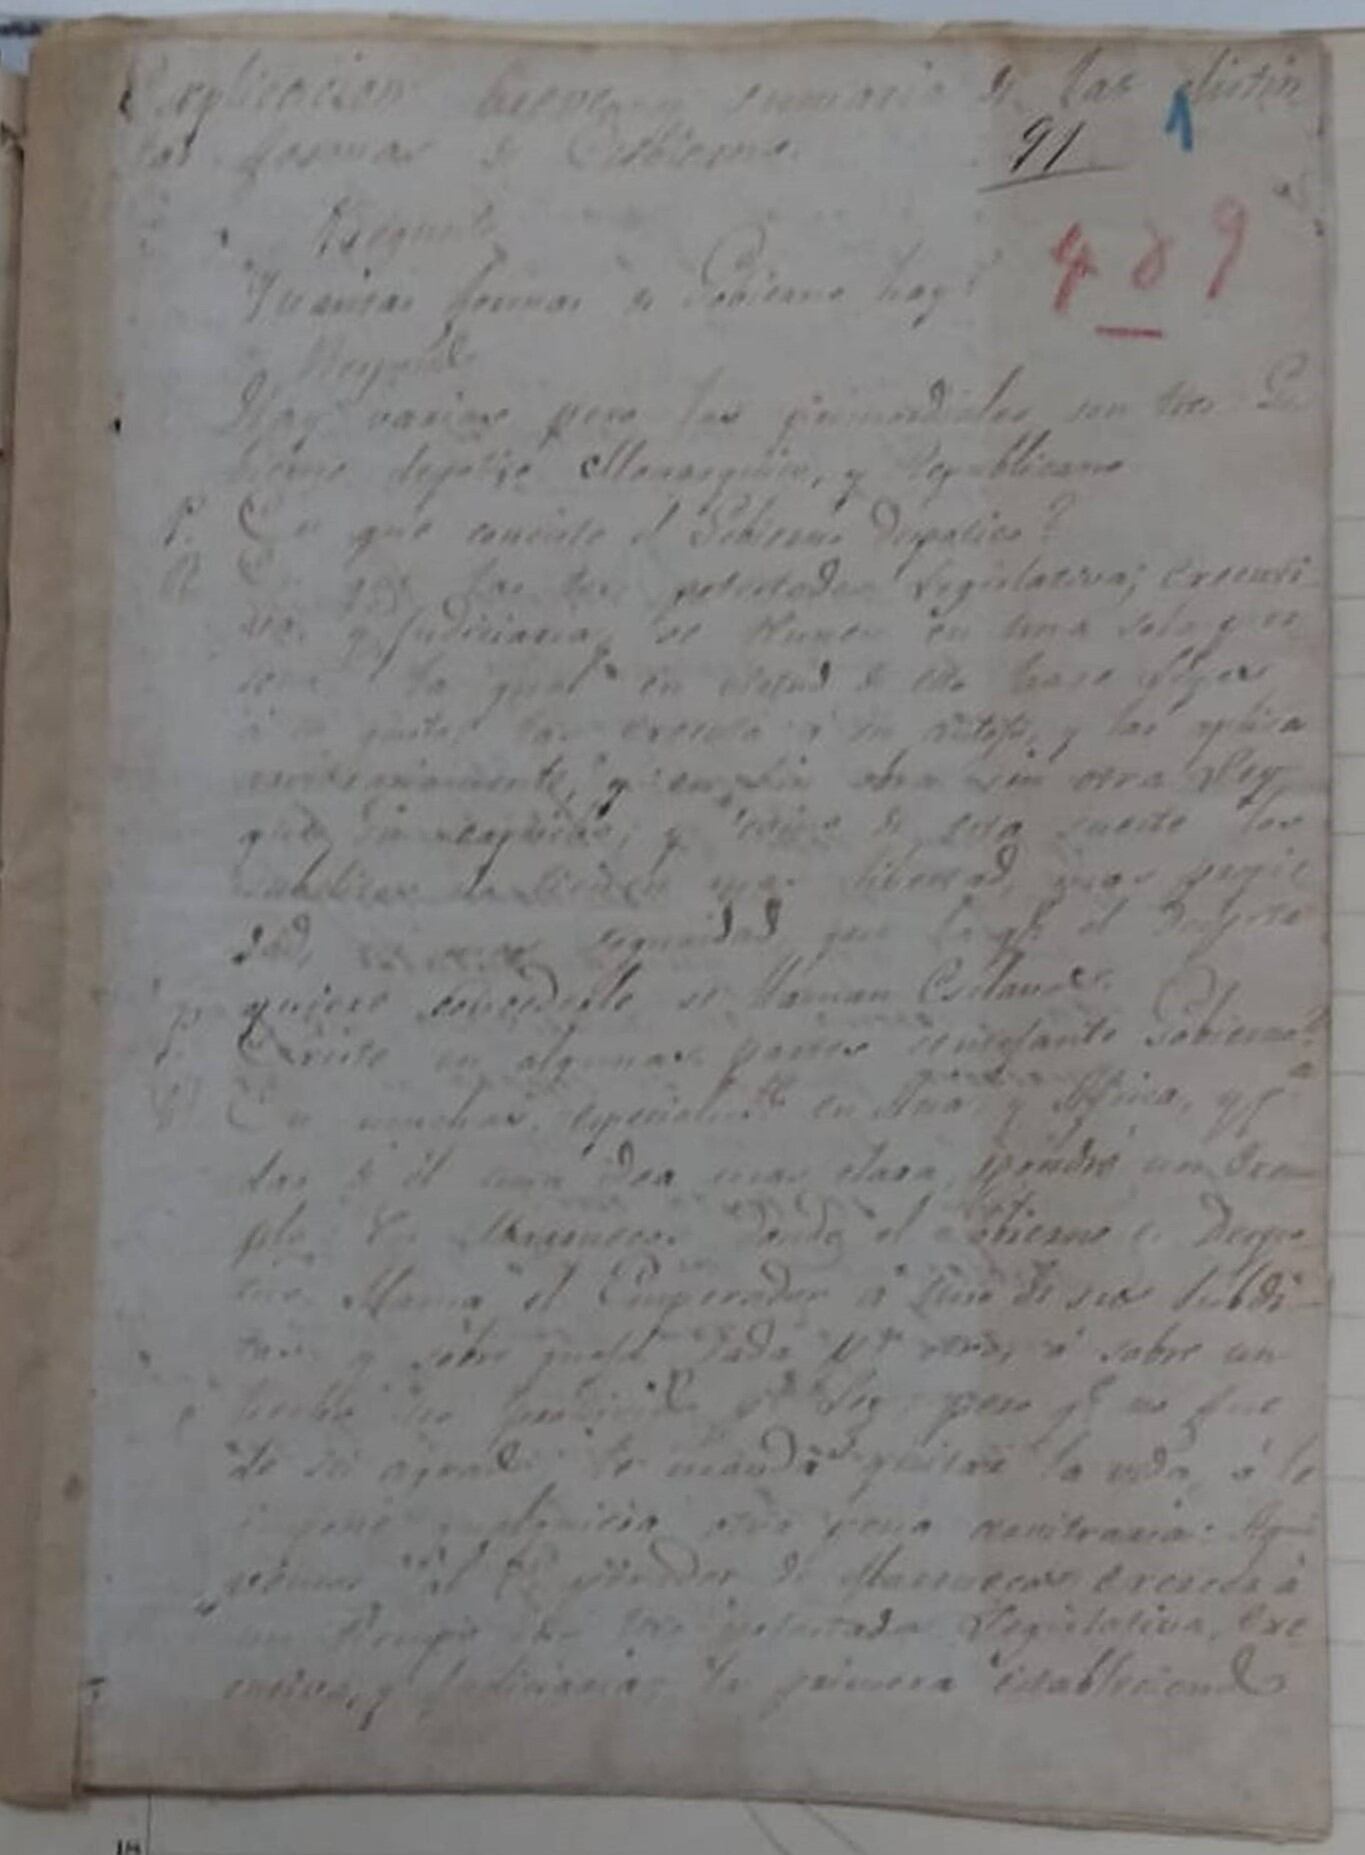 Explicacion breve y sumaria de las distin
tas formas de Gobierno.
91
1
4 8 9
Pregunta
Quantas formas de Gobierno hay?
Respond.
Hay varias pero las primordiales son tres Go
bierno despotico Monarquico, y Republicano
P. En que consiste el Gobierno Despotico?
R. En que las tres potestades Legislativa; executi
va, y Judiciaria, se reunen en una sola per
sona la qual en virtud de ello hace Leyes
á su gusto, las executa á su antojo, y las aplica
arbitrariamente, y en fin obra sin otra Ley
que su capricho; y como de esta suerte los
subditos no tienen mas libertad, mas propie
dad, seguridad que la qe. el Despota
quiere concederle se llaman Esclavos.
P. Existe en algunas partes semejante Gobierno?
R. En muchas, especialmte. en Asia y Africa, y pa.
dar de él una idea mas clara, pondré un Exem
plo. En Marruecos donde el Gobierno es Despo
tico. Llama el Emperador á uno de sus subdi
tos, y sobre queja dada pr. otro, ó sobre un
hecho no prohivido pr. Ley pero qe. no fue
de su agrado le manda quitar la vida, ó le
impone qualquiera otra pena arbitraria. Aqui
vemos al Emperador de Marruecos exercer á
un tiempo las tres potestades Legislativa, Exe
cutiva, y Judiciaria; la primera estableciendo